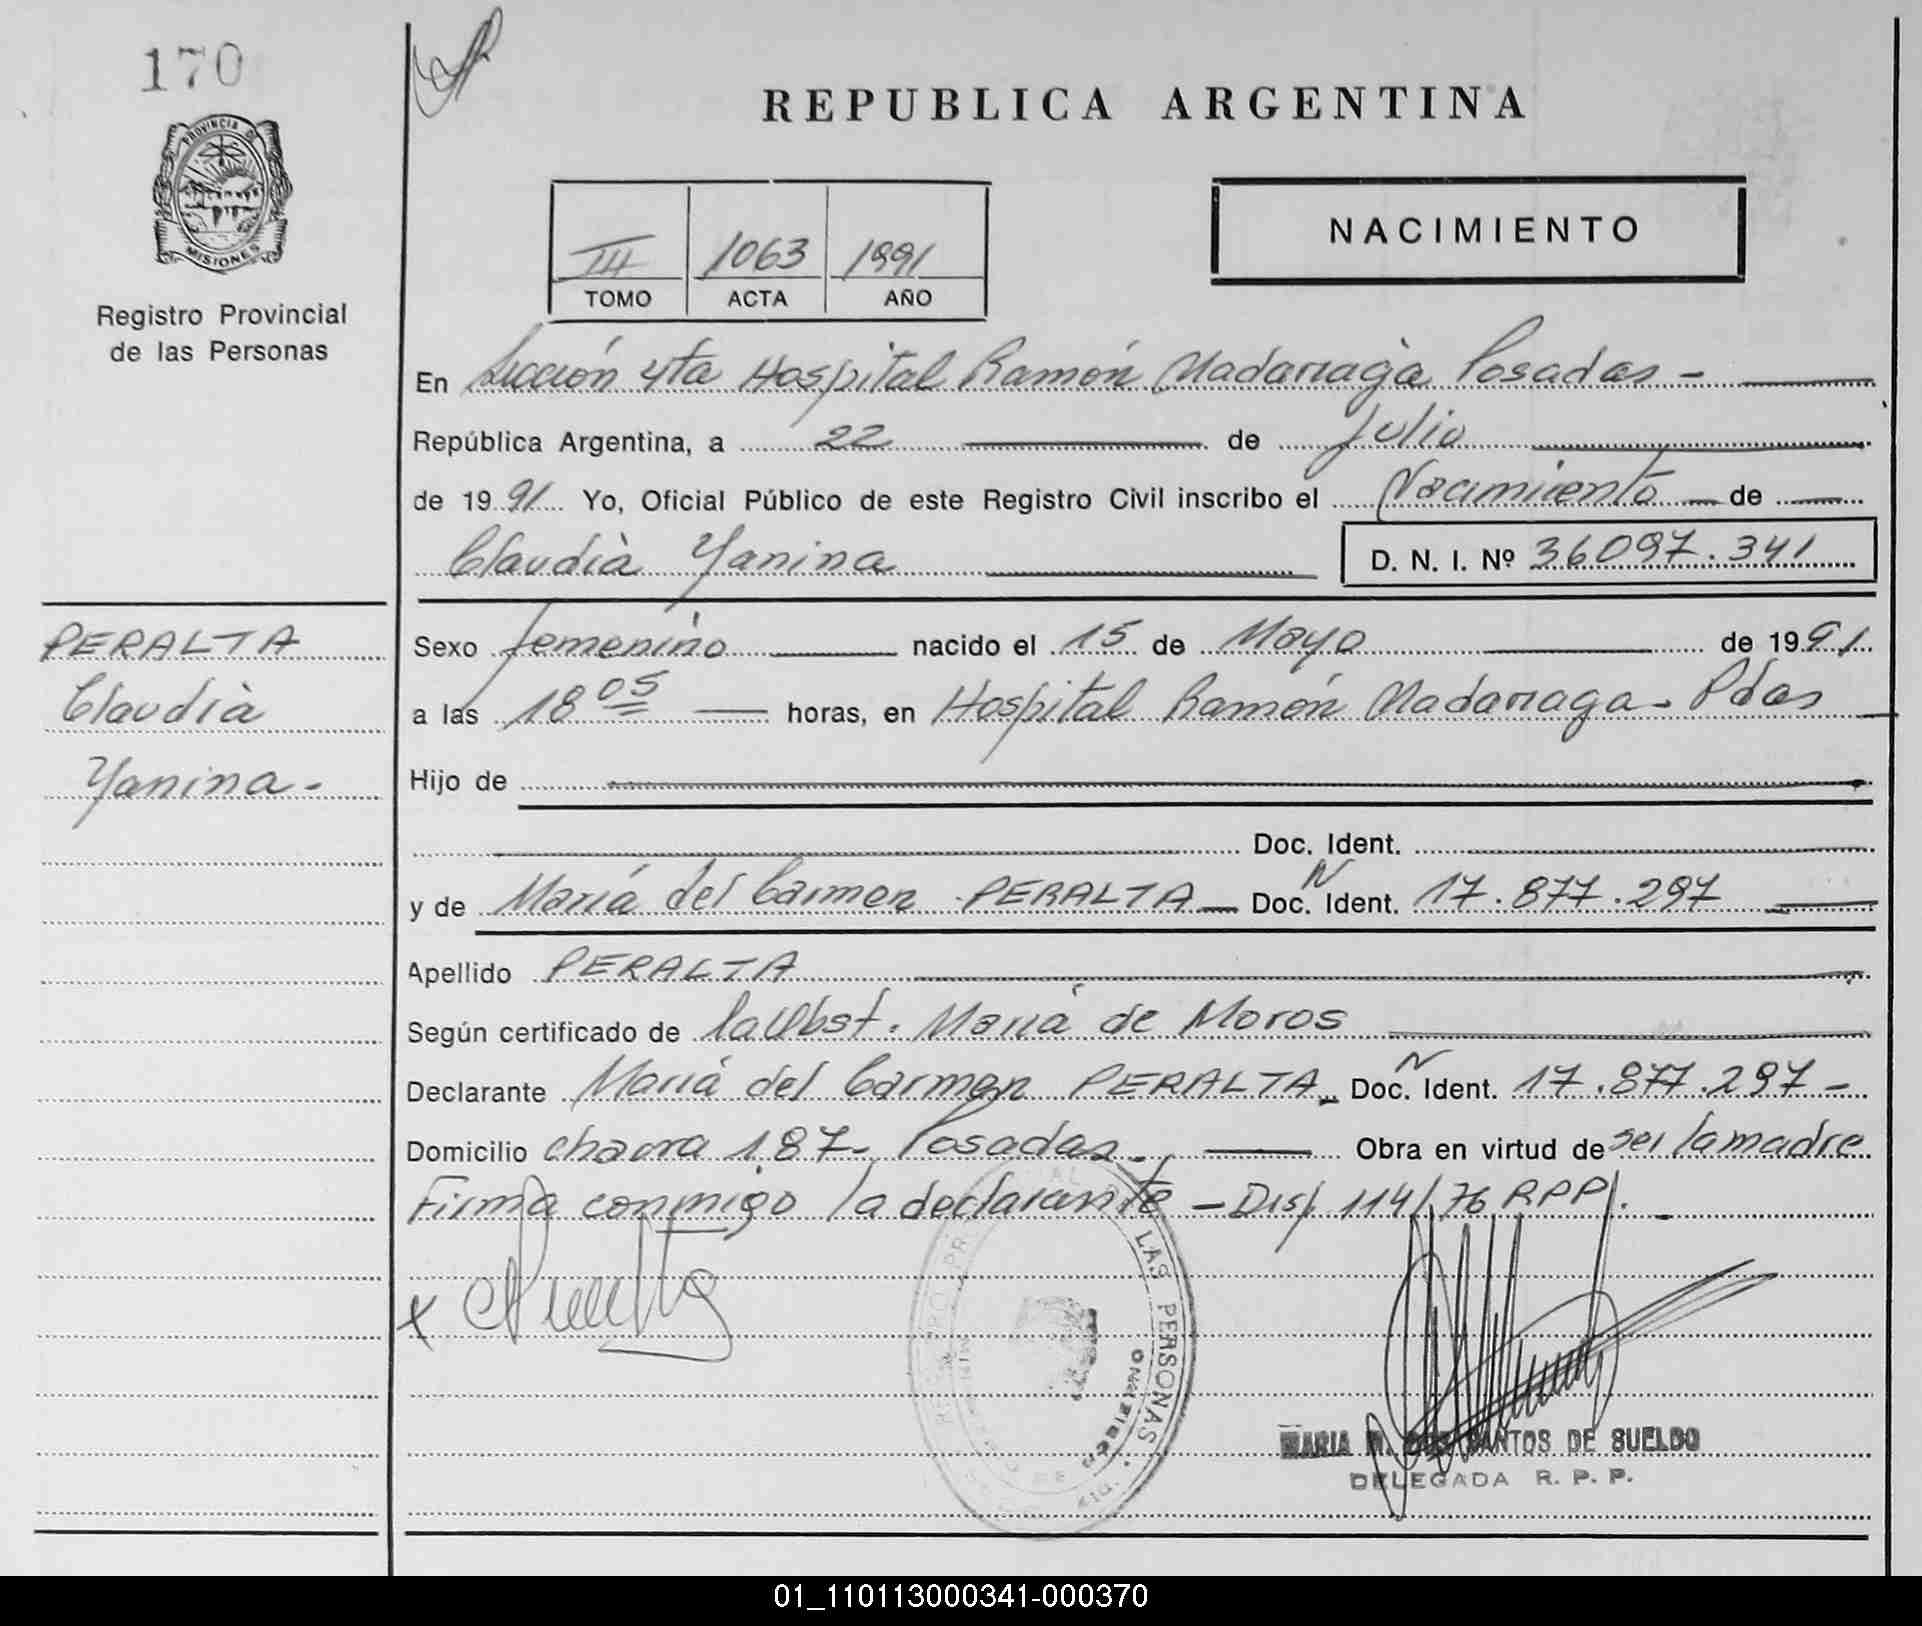 170
PROVINCIA DE
MISIONES
Registro Provincial
de las Personas
REPUBLICA ARGENTINA
NACIMIENTO
III 1063 1991
TOMO ACTA AÑO
En Sección 4ta Hospital Ramón Madariaga Posadas -
República Argentina, a 22 de Julio
de 1991 Yo, Oficial Público de este Registro Civil inscribo el Nacimiento de
Claudia Yanina D. N. I. Nº 36097.341
PERALTA
Claudia
Yanina -
Sexo femenino nacido el 15 de Mayo de 1991
a las 18 05 horas, en Hospital Ramón Madariaga - Pdas
Hijo de
Doc. Ident.
y de María del Carmen PERALTA Doc. N Ident. 17.877.297
Apellido PERALTA
Según certificado de la Obst. María de Moros
Declarante María del Carmen PERALTA - Doc. N Ident. 17.877.297 -
Domicilio chacra 187 - Posadas - Obra en virtud de ser la madre
Firma conmigo la declarante - Disp 114/76 RPP.
x
LAS PERSONAS
MARIA SANTOS DE SUELDO
DELEGADA R. P. P.
01_110113000341-000370